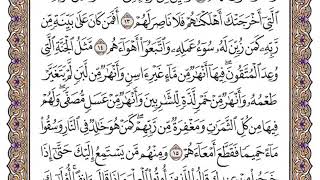 ٱلَّتِىٓ أَخْرَجَتْكَ أَهْلَكْنَـٰهُمْ فَلَا نَاصِرَ لَهُمْ ١٣ أَفَمَن كَانَ عَلَىٰ بَيِّنَةٍ مِّن
رَّبِّهِۦ كَمَن زُيِّنَ لَهُۥ سُوٓءُ عَمَلِهِۦ وَٱتَّبَعُوٓا۟ أَهْوَآءَهُم ١٤ مَّثَلُ ٱلْجَنَّةِ ٱلَّتِى
وُعِدَ ٱلْمُتَّقُونَ فِيهَآ أَنْهَـٰرٌ مِّن مَّآءٍ غَيْرِ ءَاسِنٍ وَأَنْهَـٰرٌ مِّن لَّبَنٍ لَّمْ يَتَغَيَّرْ
طَعْمُهُۥ وَأَنْهَـٰرٌ مِّنْ خَمْرٍ لَّذَّةٍ لِّلشَّـٰرِبِينَ وَأَنْهَـٰرٌ مِّنْ عَسَلٍ مُّصَفًّى وَلَهُمْ
فِيهَا مِن كُلِّ ٱلثَّمَرَٰتِ وَمَغْفِرَةٌ مِّن رَّبِّهِمْ كَمَنْ هُوَ خَـٰلِدٌ فِى ٱلنَّارِ وَسُقُوا۟
مَآءً حَمِيمًا فَقَطَّعَ أَمْعَآءَهُمْ ١٥ وَمِنْهُم مَّن يَسْتَمِعُ إِلَيْكَ حَتَّىٰٓ إِذَا
خَرَجُوا۟ مِنْ عِندِكَ قَالُوا۟ لِلَّذِينَ أُوتُوا۟ ٱلْعِلْمَ مَاذَا قَالَ ءَانِفًا أُو۟لَـٰٓئِكَ